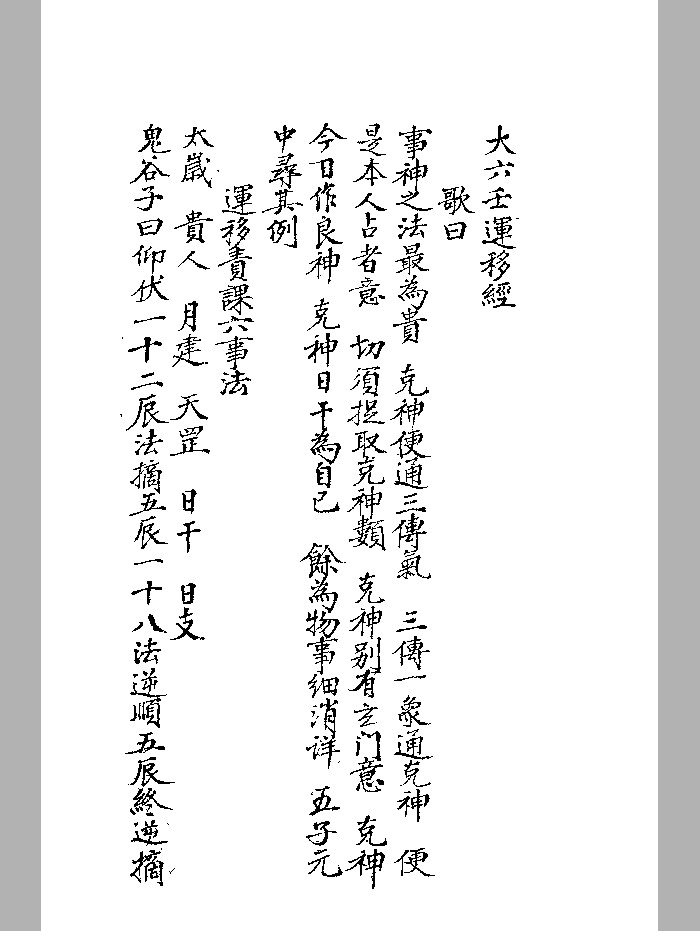 大六壬運移經
歌曰
事神之法最為貴　克神便通三傳氣　三傳一象通克神　便
是本人占者意　切須捉取克神類　克神別有玄门意　克神
今日作良神　克神日干為自己　餘為物事細消详　五子元
中尋其例
運移責課六事法
太嵗　貴人　月建　天罡　日干　日支
鬼谷子曰仰伏一十二辰法摘五辰一十八法逆順五辰終逆摘